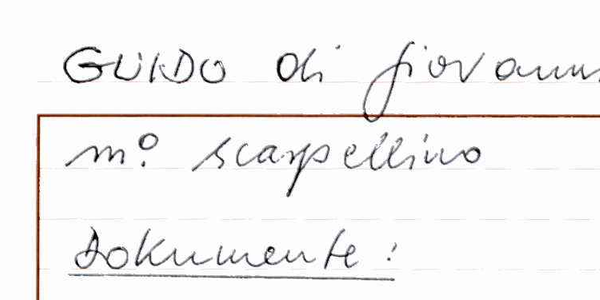 GUIDO di Giovanni
m.º scarpellino
Dokumente: